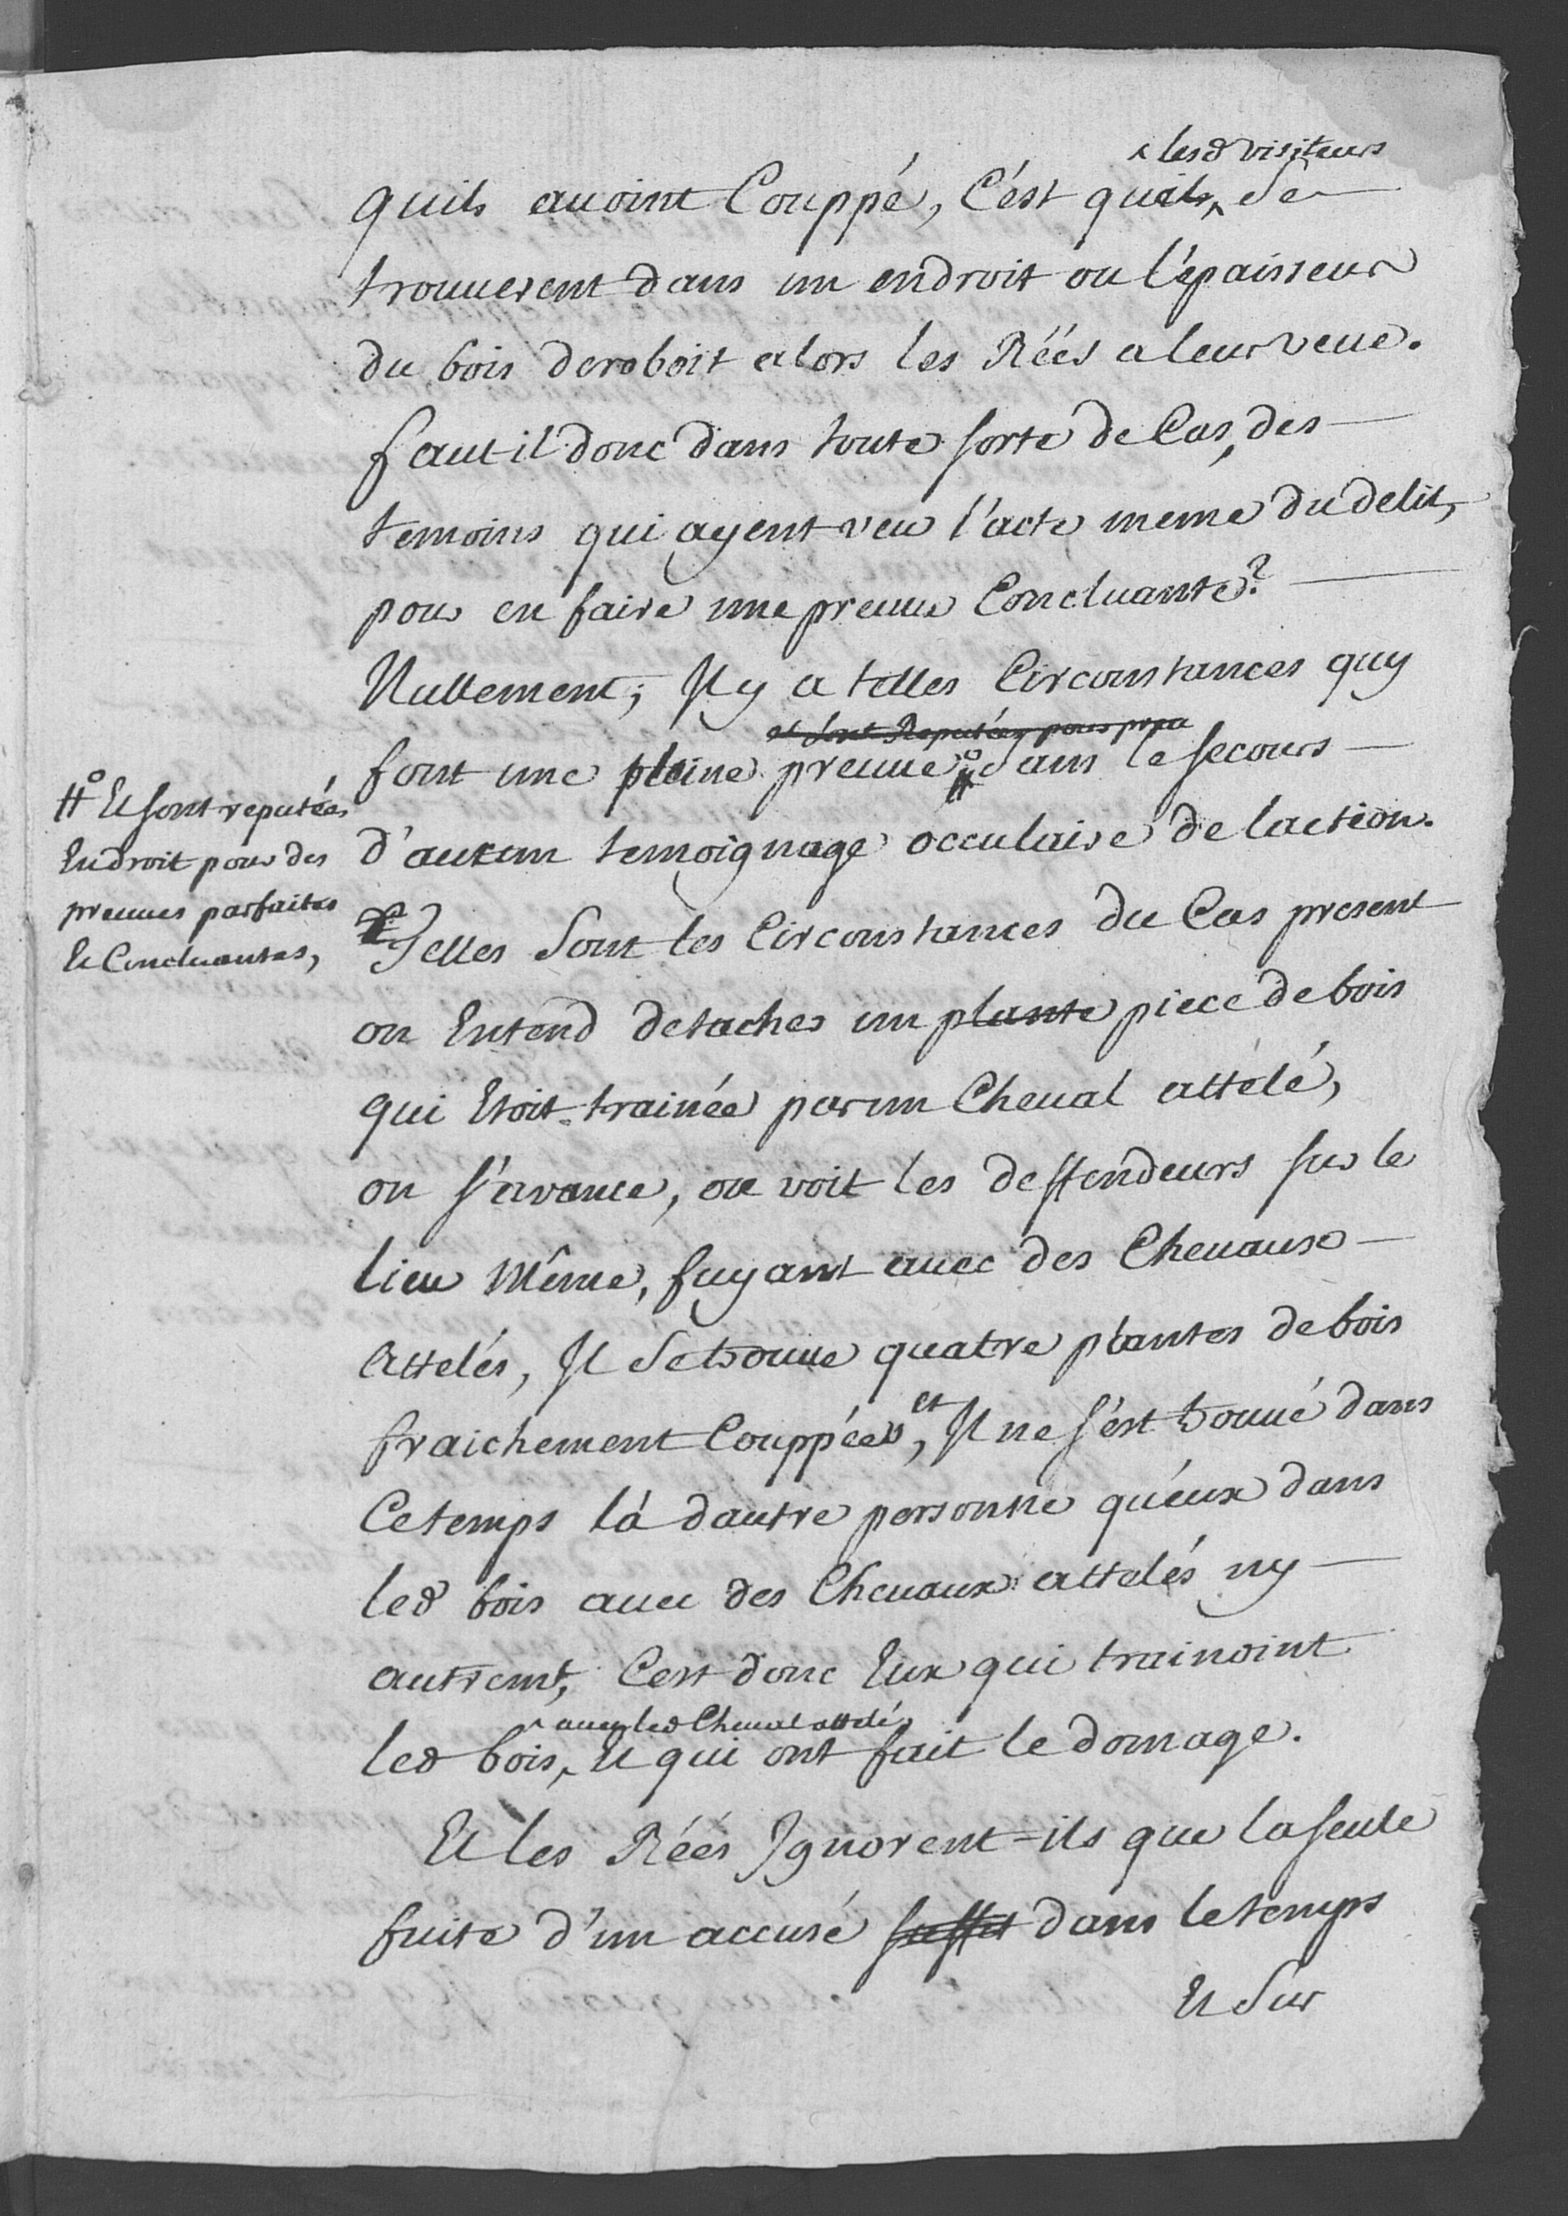 ^ lesd visiteurs
quils avoint Couppé, C'ést quils ^ Se
trouverent dans un endroit ou l'épaisseur
du bois deroboit alors les Réés a leur veue.
faut il donc dans toute sorte de Cas, des
temoins qui ayent veu l'acte meme du delit,
pour en faire une preuve Concluante?
Nullement; Il y a telles Circonstances quy
et sont Reputées pour preu
font une pleine preuve, # sans le secours
# Et sont reputées
En droit pour des
preuves parfaites
Et Concluantes,
d'aucun temoignage occulaire de laction.
Telles Sont les Circonstances du Cas present
on Entend detacher un plante piece de bois
qui Etoit trainée par un Cheval attélé,
on s'avance, on voit les deffendeurs sur le
lieu Même, fuyant avec des Chevaux
attelés, Il se trouve quatre plantes de bois
fraichement Couppées, et Il ne s'ést trouvé dans
Ce temps lá dautre personne qu'eux dans
led bois avec des Chevaux attelés ny
autremt, C'est donc Eux qui trainoint
^ avec led Cheval attelé
led bois, ^ Et qui ont fait le domage.
Et les Réés Ignorent-ils que la seule
fuite d'un accusé suffit dans le temps
Et Sur